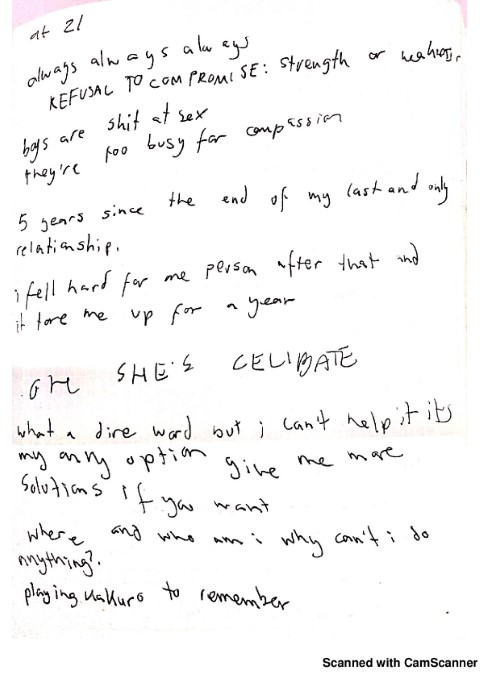 at 21
always always always
REFUSAL TO COMPROMISE: strength or
boys are shit at sex
they're too busy for compassion
5 years since the end of my last and only
relationship.
i fell hard for me person after that and
it tore me up for a year
OH SHE'S CELIBATE
what a dire word but i can't help it its
my onny option give me more
solutions if you want
where and who am i why can't i do
anything?.
playing kakuro to remember
Scanned with CamScanner